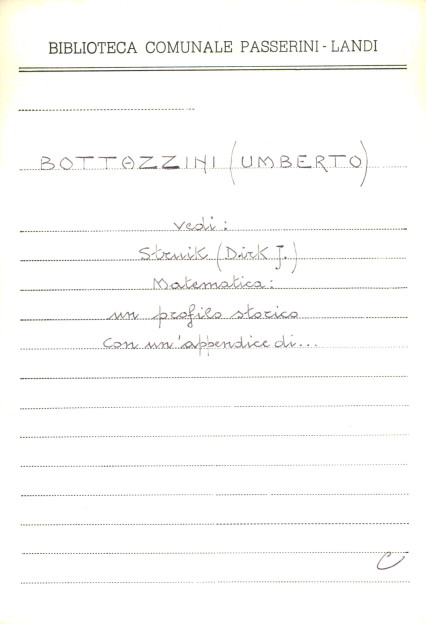 BIBLIOTECA COMUNALE PASSERINI - LANDI
BOTTAZZINI (UMBERTO)
vedi:
Struik (Dirk J.)
Matematica:
un profilo storico
con un'appendice di...
C